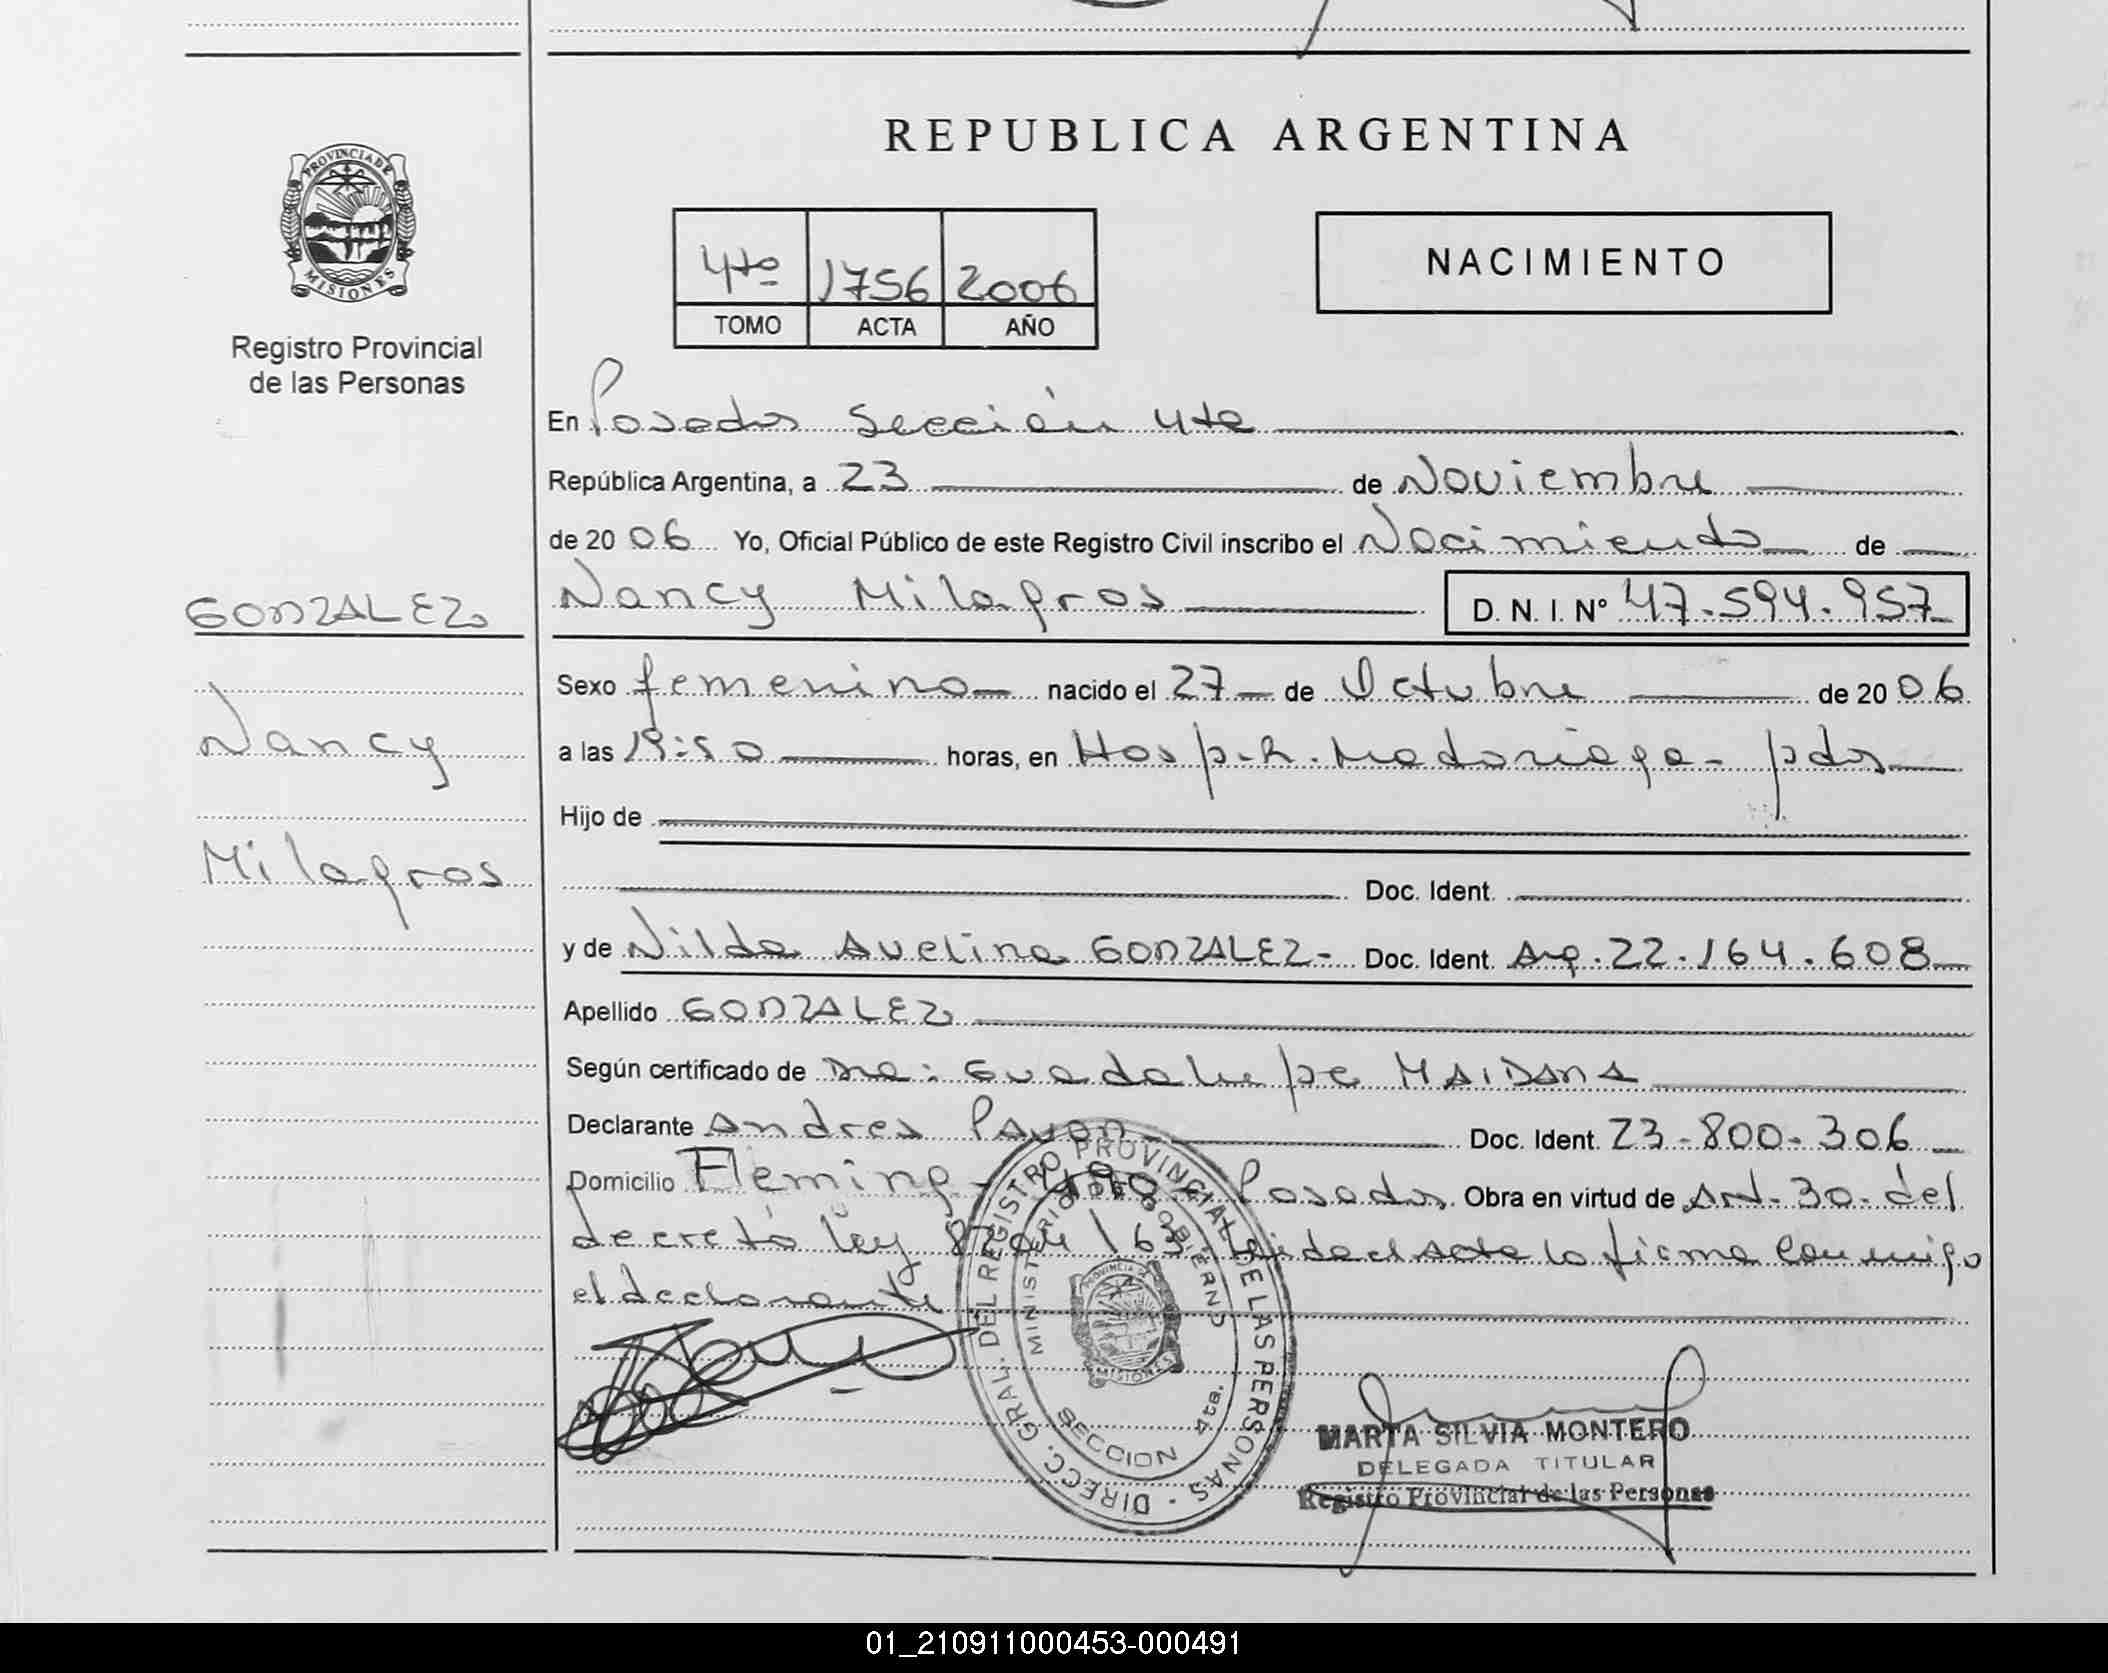 REPUBLICA ARGENTINA
PROVINCIA DE
MISIONES
Registro Provincial
de las Personas
4to 1756 2006
TOMO ACTA AÑO
NACIMIENTO
En Posadas Sección 4ta
República Argentina, a 23 de Noviembre
de 2006 Yo, Oficial Público de este Registro Civil inscribo el Nacimiento de
Nancy Milagros D. N. I. Nº 47.594.957
GONZALEZ
Nancy
Milagros
Sexo femenino nacido el 27 de Octubre de 2006
a las 19:50 horas, en Hosp. R. Madariaga - pdas
Hijo de
Doc. Ident.
y de Nilda Avelina GONZALEZ - Doc. Ident. Arg. 22.164.608
Apellido GONZALEZ
Según certificado de Dra: Guadalupe MAIDANA
Declarante Andres Pavon Doc. Ident. 23-800-306
Domicilio Fleming - Posadas Obra en virtud de Art. 30 del
decreto ley 8204/63 Leida el Acta la firma conmigo
el declarante
DIRECC. GRAL. DEL REGISTRO PROVINCIAL DE LAS PERSONAS
MINISTERIO DE GOBIERNO
PROVINCIA DE
MISIONES
SECCION 4ta.
MARTA SILVIA MONTERO
DELEGADA TITULAR
Registro Provincial de las Personas
01_210911000453-000491